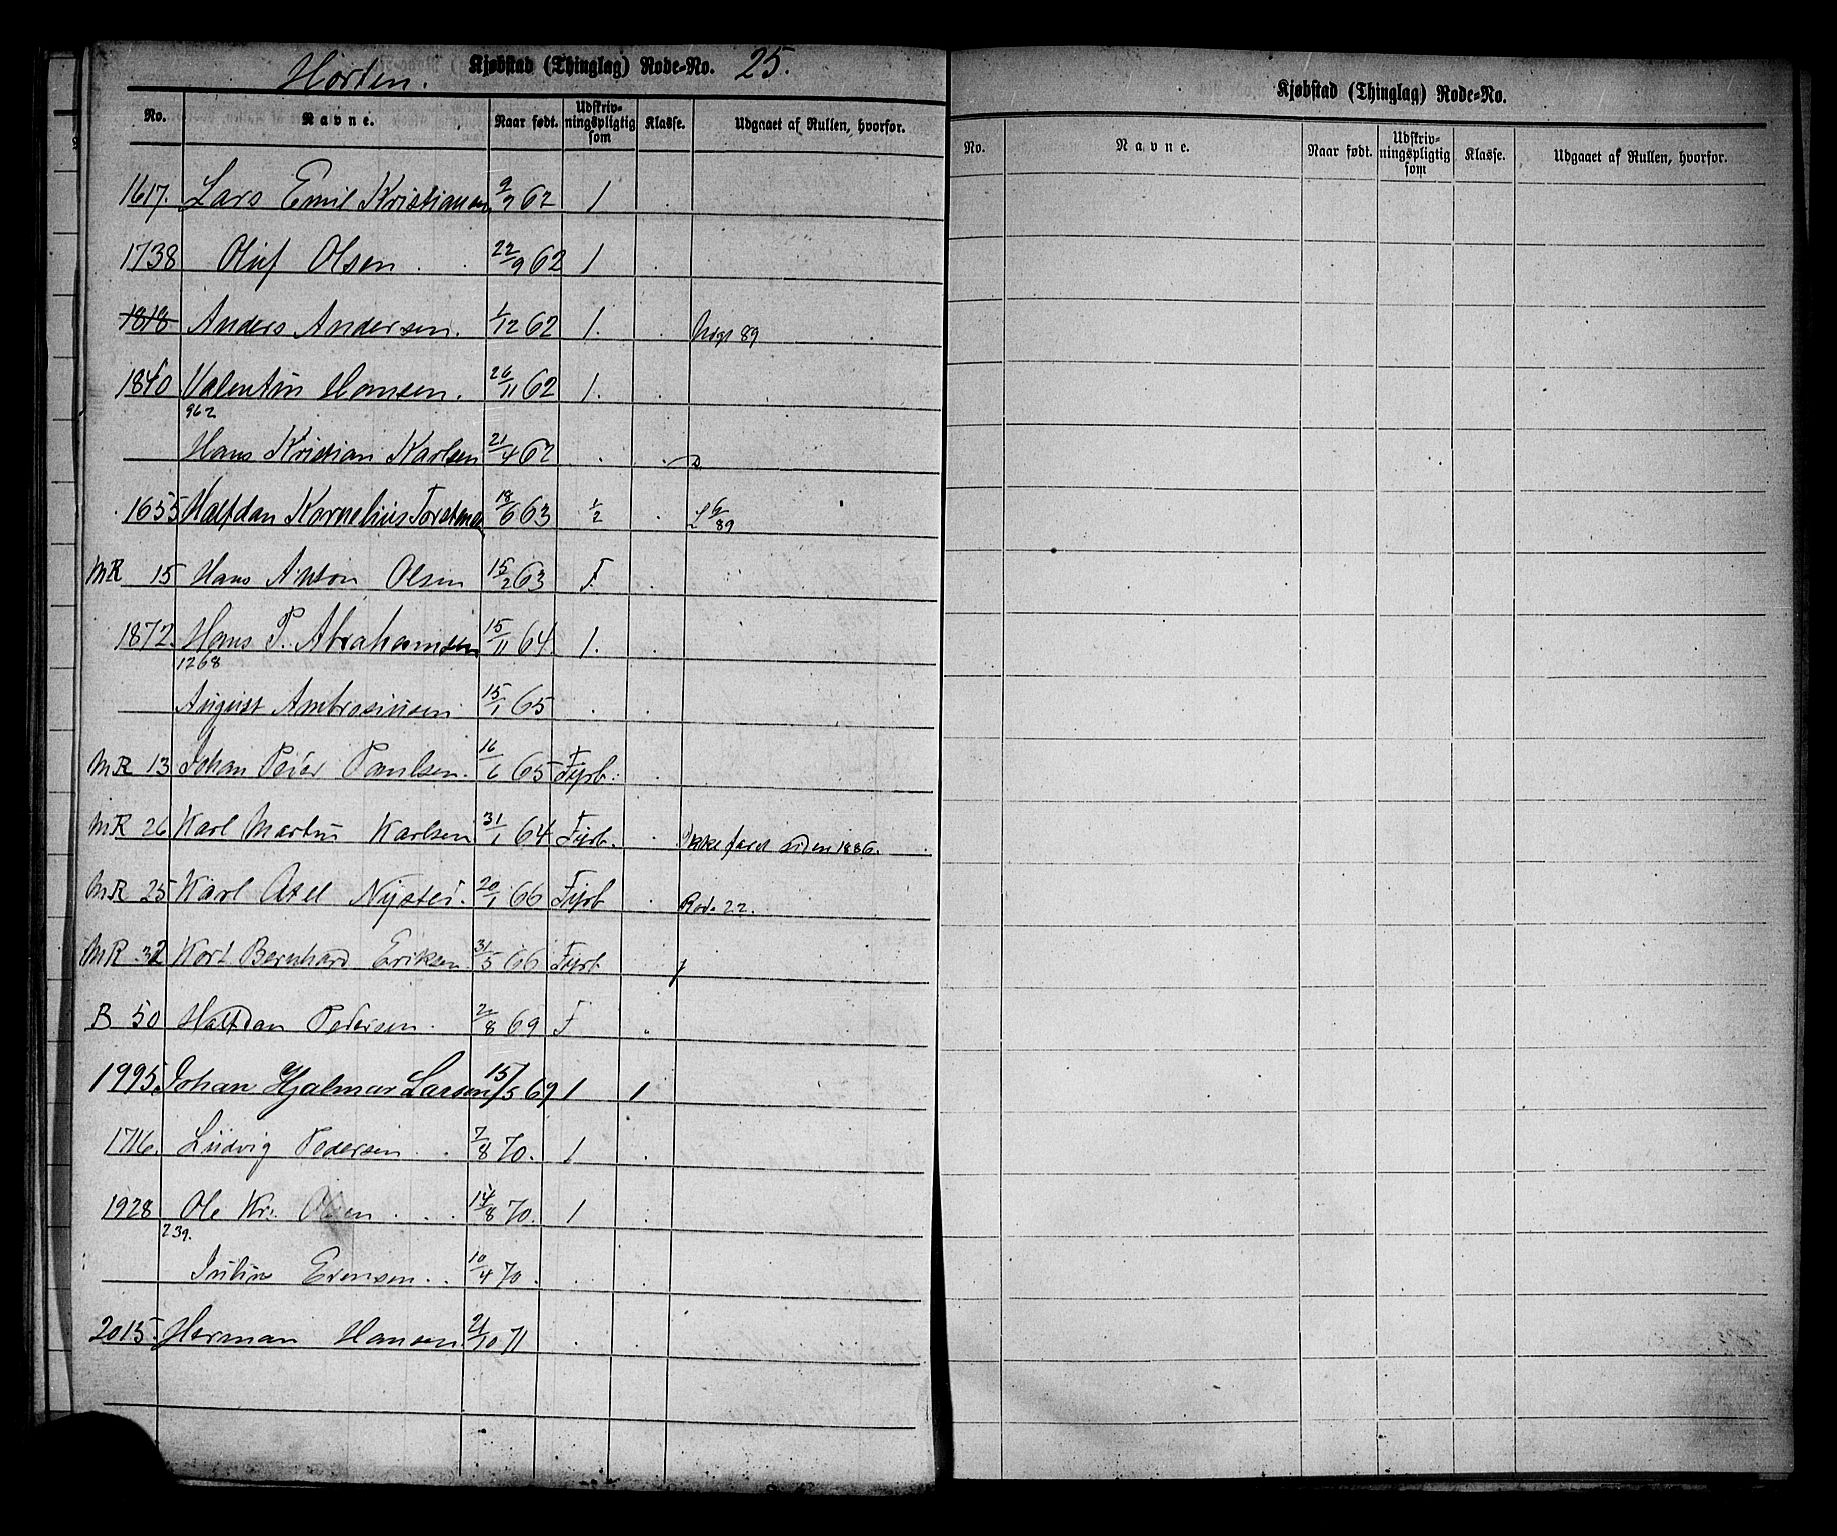 Horten. Kjøbstad (Thinglag) Rode-No. 25.
No. Navne. Naar født. Udskriv-ningspligtig som Klasse. Udgaaet af Rullen, hvorfor.
1617. Lars Emil Kristiansen 9/9 62 1
1738 Oluf Olsen 22/9 62 1
1818 Anders Andersen. 1/12 62 1. 89
1840 Valentin Hansen. 26/11 62 1.
962
Hans Kristian Karlsen 21/4 62
1655 Halfdan Kornelius Torstensen 18/6 63 1/2 89
MR 15 Hans Anton Olsen 15/2 63 F.
1872. Hans P. Abrahamsen 15/11 64. 1.
1268
August Ambrosiusen 15/1 65
MR 13 Johan Peder Paulsen. 16/6 65 Fyrb.
MR 26 Karl Martin Karlsen 31/1 64 Fyrb. Ikke faret siden 1886.
MR 25 Karl Axel Nyster. 20/1 66 Fyrb Rode 22.
MR 32 Kort Bernhard Eriksen 31/5 66 Fyrb
B 50 Halfdan Pedersen. 2/8 69 F
1995. Johan Hjalmar Larsen 15/5 69 1 1
1716. Ludvig Pedersen 7/8 70. 1
1928 Ole Kr. Olsen 14/8 70. 1
239.
Julius Evensen 10/4 70
2015. Herman Hansen 21/10 71
Kjøbstad (Thinglag) Rode-No.
No. Navne. Naar født. Udskriv-ningspligtig som Klasse. Udgaaet af Rullen, hvorfor.